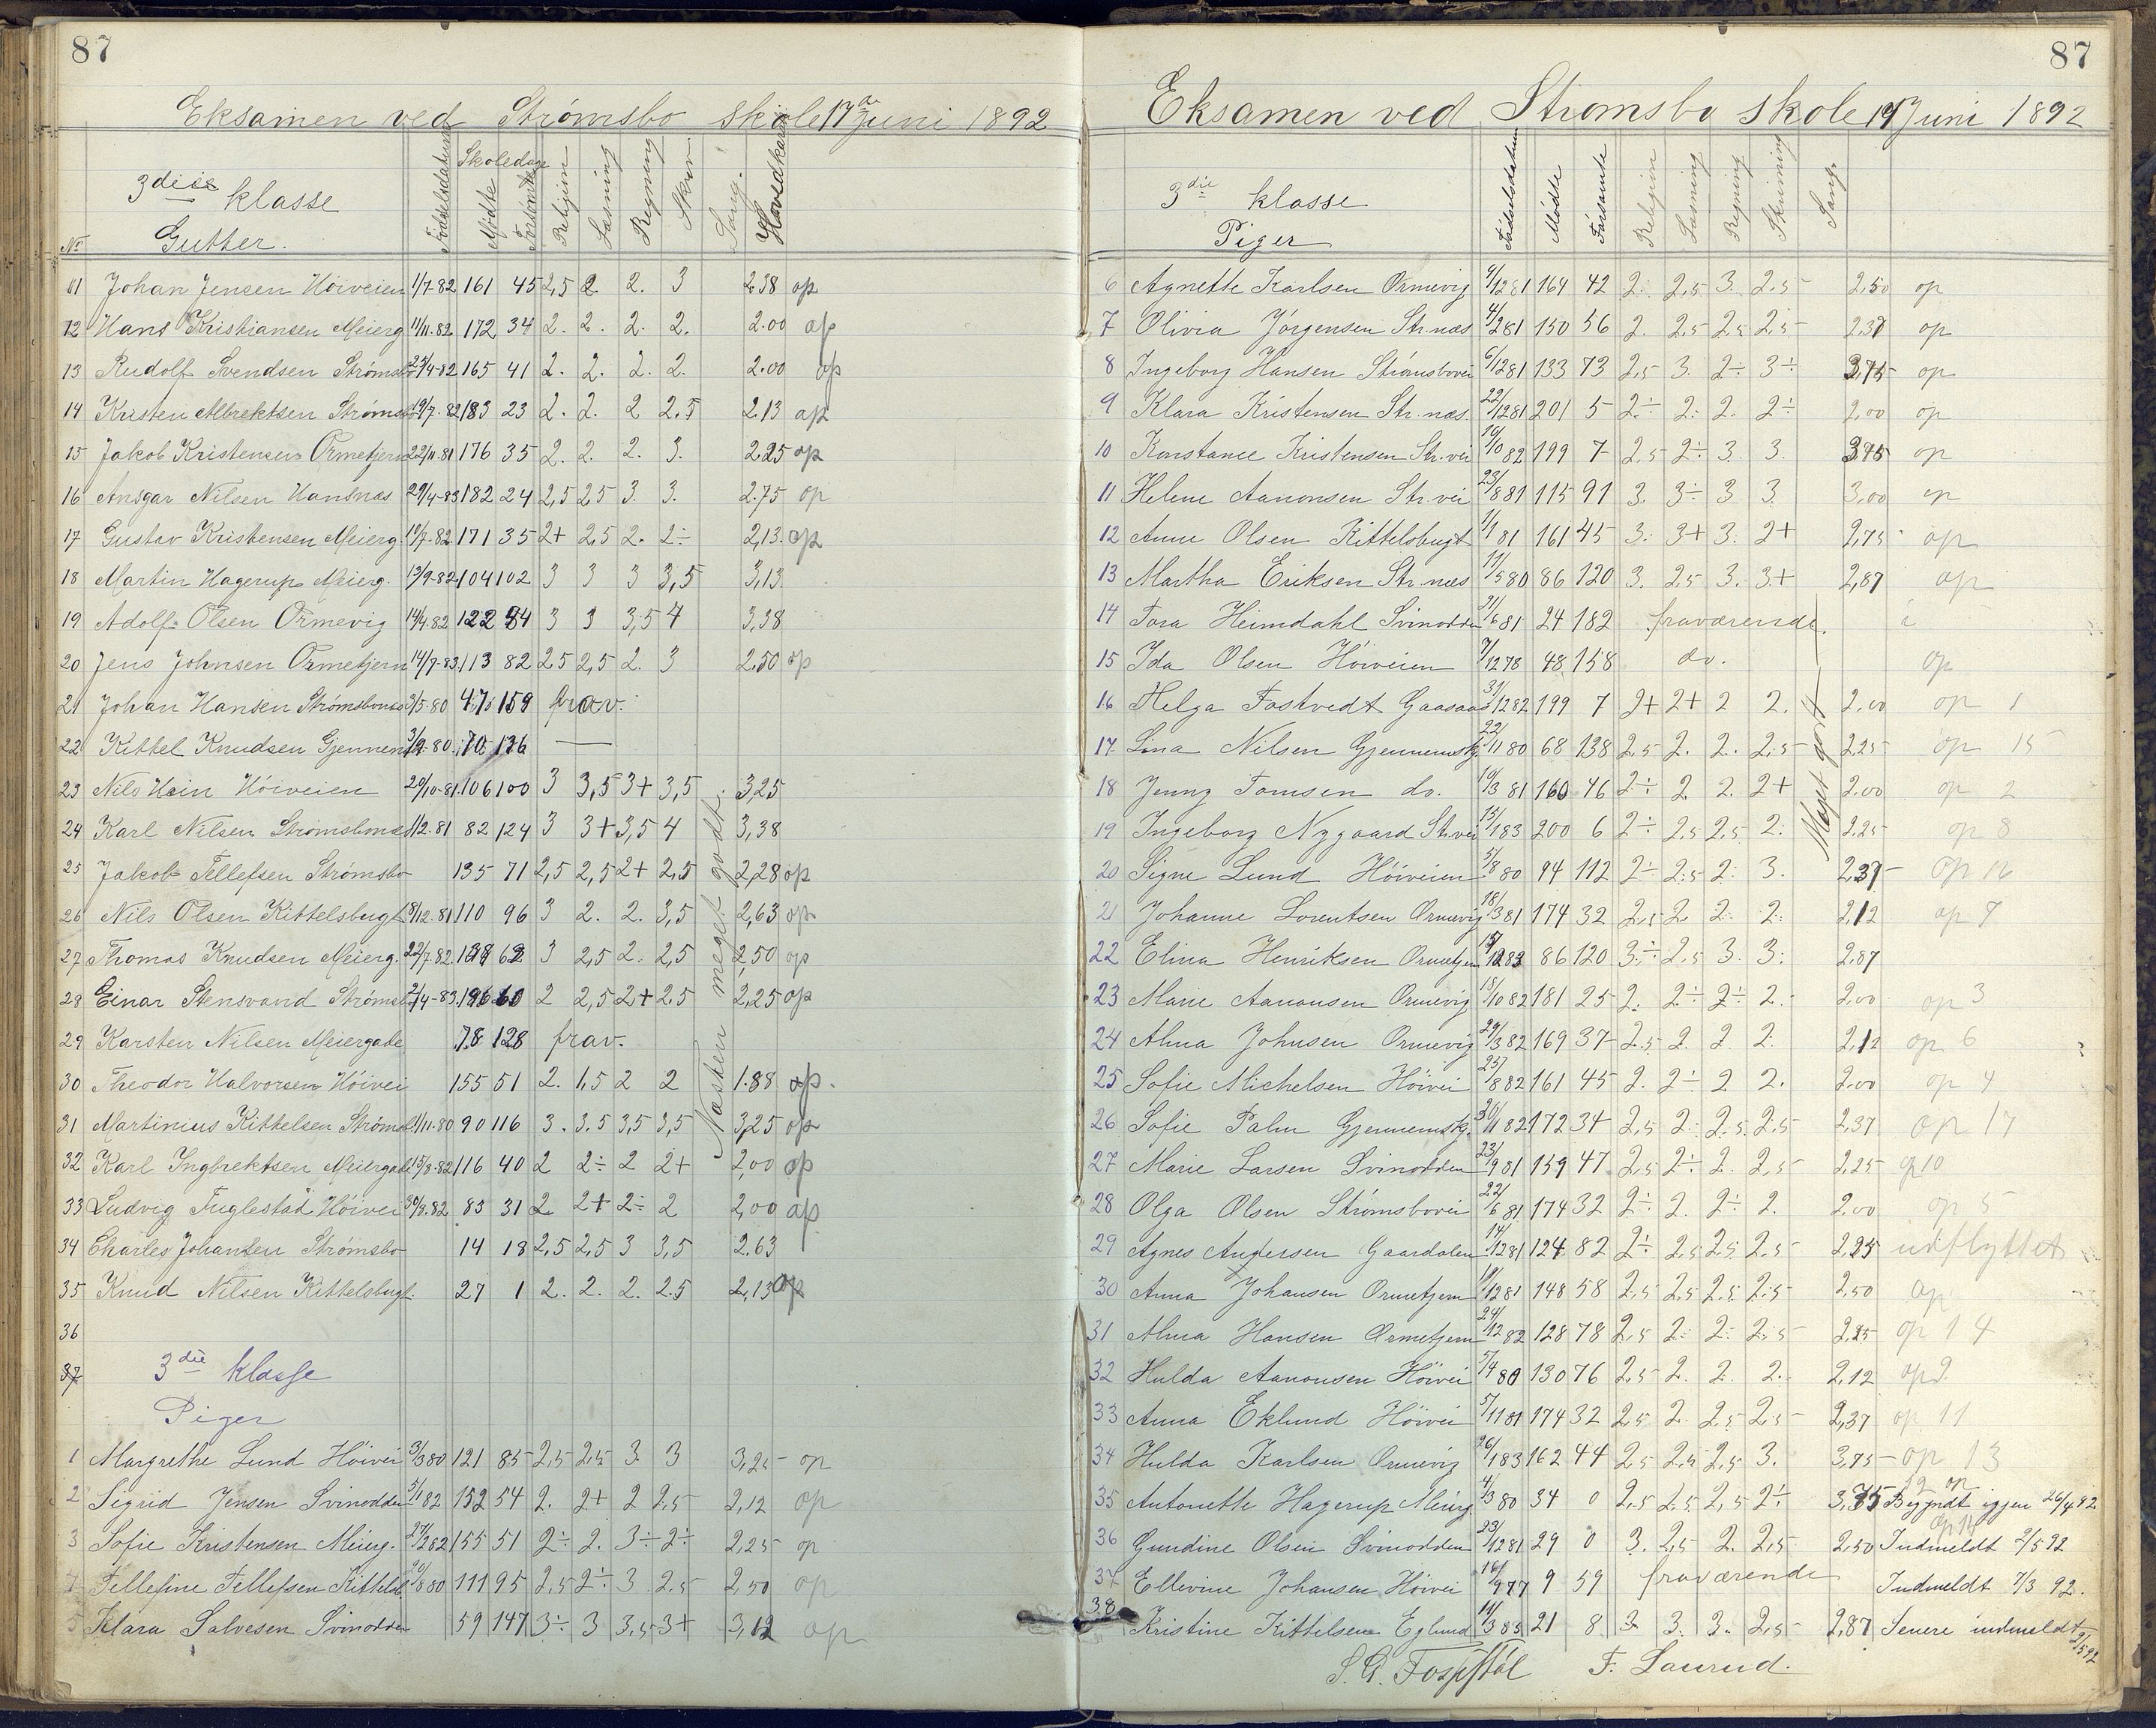 87
Eksamen ved Strømsbo skole 17de Juni 1892
Skoledage
3die klasse
Gutter.
No Fødselsdatum Mødte Forsømte Religion Læsning Regning Skriv Sang. Hovedkarakter
11 Johan Jensen Höiveien 1/7-82 161 45 2,5 2 2. 3 2.38 op
12 Hans Kristiansen Meierg 11/11.82 172 34 2. 2. 2. 2. 2.00 op
13 Rudolf Svendsen Strømsbo 165 41 2. 2. 2. 2. 2.00 op
14 Kristen Albrektsen Strømsbo 19/7.82 183 23 2. 2. 2 2.5 2.13 op
15 Jakob Kristensen Ormetjern 22/11.81 176 35 2. 2. 2. 3. 2.25 op
16 Ansgar Nilsen Hansnæs 29/4-83 182 24 2,5 2,5 3. 3. 2.75 op
17 Gustav Kristensen Meierg. 171 35 2+ 2,5 2. 2÷ 2,13. op
18 Martin Hagerup Meierg. 13/9-82 104 102 3 3 3 3,5 3,13.
19 Adolf Olsen Ormevig 14/4.82 122 84 3 3 3,5 4 3,38
20 Jens Johnsen Ormetjern 14/7-83 113 82 2,5 2,5 2. 3 2.50 op
21 Johan Hansen Strømsbonæs 3/5.80 47 159 frav.
22 Kittel Knudsen Gjennemsk 70 136 —
23 Nils Hein Höiveien 20/10-81 106 100 3 3,5 3+ 3,5 3,25
24 Karl Nilsen Strømsbonæs 82 124 3 3+ 3,5 4 3,38
25 Jakob Tellefsen Strømsbo 135 71 2,5 2,5 2+ 2,5 2,28 op
26 Nils Olsen Kittelsbugt 8/12.81 110 96 3 2. 2. 3,5 2,63 op
27 Thomas Knudsen Meierg. 22/7.82 3 2,5 2. 2,5 2,50 op
28 Einar Stensvand Strømsbo 2 2,5 2+ 2,5 2,25 op
29 Karsten Nilsen Meiergade 78 128 frav.
30 Theodor Halvorsen Höivei 155 51 2. 1,5 2 2 1.88 op.
31 Martinius Kittelsen Strømsb 1/11-80 90 116 3. 3.5 3,5 3,5 3,25 op
32 Karl Ingbrektsen Meiergade 116 40 2 2÷ 2 2+ 2,00 op
33 Ludvig Fuglestad Höivei 30/8.82 83 31 2 2+ 2÷ 2 2,00 op
34 Charles Johansen Strømsbo 14 18 2,5 2,5 3 3,5 2.63
35 Knud Nilsen Kittelsbugt. 27 1 2. 2. 2. 2.5 2,13 op
Næsten meget godt.
36
37 3die klasse
Piger
1 Margrethe Lund Höivei 3/3 80 121 85 2,5 2,5 3. 3 3,25 op
2 Sigrid Jensen Svinodden 5/1 82 152 54 2. 2+ 2 2,5 2,12 op
3 Sofie Kristensen Meierg. 27/2 82 155 51 2÷ 2. 3÷ 2÷ 2,25 op
4 Tellefine Tellefsen Kittelsb. 111 95 2,5 2÷ 3 2.5 2,50 op
5 Klara Salvesen Svinodden 59 147 3÷ 3 3,5 3+ 3,12 op
87
Eksamen ved Strømsbo skole 17 Juni 1892
3die klasse
Piger
Fødselsdatum Mødte Forsømte Religion Læsning Regning Skrivning Sang
6 Agnette Karlsen Ormevig 9/12 81 164 42 2. 2,5 3. 2,5 2,50 op
7 Olivia Jørgensen Str.næs 4/2 81 150 56 2. 2,5 2,5 2,5 2,37 op
8 Ingeborg Hansen Strømsbovei 6/12 81 133 73 2,5 3. 2÷ 3÷ op
9 Klara Kristensen Str.næs. 22/12 81 201 5 2÷ 2. 2. 2÷ 2,00 op
10 Konstance Kristensen Str.vei 16/10 82 199 7 2,5 2÷ 3. 3. op
11 Helene Aanonsen Str.vei 23/8 81 115 91 3. 3÷ 3 3. 3,00 op
12 Anne Olsen Kittelsbugt 1/1 81 161 45 3. 3+ 3. 2+ 2,75 op
13 Martha Eriksen Str.næs 11/5 80 86 120 3. 2,5 3. 3+ 2,87 op
14 Tora Heimdahl Svinodden 21/6 81 24 182 fraværende.
15 Ida Olsen Höiveien 7/12 78 48 158 do. op
16 Helga Fostvedt Gaasaas 31/12 82 199 7 2+ 2+ 2 2. 2,00 op 1
17 Lina Nilsen Gjennemsk. 22/11 80 68 138 2,5 2. 2. 2,5 2,25 op 15
18 Jenny Tomsen do. 19/3 81 160 46 2÷ 2. 2. 2+ 2.00 op 2
19 Ingeborg Nygaard Str.vei 13/1 83 200 6 2÷ 2,5 2,5 2. 2.25 op 8
20 Signe Lund Höiveien 5/8 80 94 112 2÷ 2.5 2. 3. 2,37 op 16
21 Johanne Lorentsen Ormevig 18/3 81 174 32 2,5 2. 2. 2. 2,12 op 7
22 Elina Henriksen Ormetjern 86 120 3÷ 2,5 3. 3. 2,87
23 Marie Aanonsen Ormevig 18/10 82 181 25 2. 2÷ 2÷ 2. 2,00 op 3
24 Alma Johnsen Ormevig 29/3 82 169 37 2.5 2. 2 2. 2,12 op 6
25 Sofie Michelsen Höivei 25/8 82 161 45 2. 2÷ 2 2. 2,00 op 4
26 Sofie Palm Gjennemsk. 30/11 82 172 34 2,5 2. 2,5 2,5 2,37 op 17
27 Marie Larsen Svinodden 23/9 81 159 47 2,5 2÷ 2. 2,5 2,25 op 10
28 Olga Olsen Strømsbovei 22/6 81 174 32 2÷ 2. 2÷ 2. 2.00 op 5
29 Agnes Andersen Gaardalen 14/12 81 124 82 2÷ 2,5 2,5 2,5 2,25 udflyttet
30 Anna Johansen Ormetjern 148 58 2,5 2,5 2,5 2,5 2,50 op
31 Alma Hansen Ormetjern 24/12 82 128 78 2,5 2. 2. 2,5 2,25 op 14
32 Hulda Aanonsen Höivei 5/4 80 130 76 2,5 2. 2. 2. 2,12 op 9
33 Anna Eklund Höivei 5/11 81 174 32 2,5 2. 2,5 2,5 2,37 op 11
34 Hulda Karlsen Ormevig 26/1 83 162 44 2,5 2,5 2,5 3. op 13
35 Antonette Hagerup Meierg. 4/3 80 34 0 2,5 2,5 2,5 2÷ 12 op Begyndt igjen 26/4 92
36 Gundine Olsen Svinodden 23/12 81 29 0 3. 2,5 2. 2,5 2,50 op 14 Indmeldt 2/5 92
37 Ellevine Johansen Höivei 16/9 77 9 59 fraværende Indmeldt 7/3 92.
38 Kristine Kittelsen Eglund 11/3 83 21 8 3. 3. 3. 2,5 2,87 Senere indmeldt 9/5 92
Meget godt
F. Laurud.